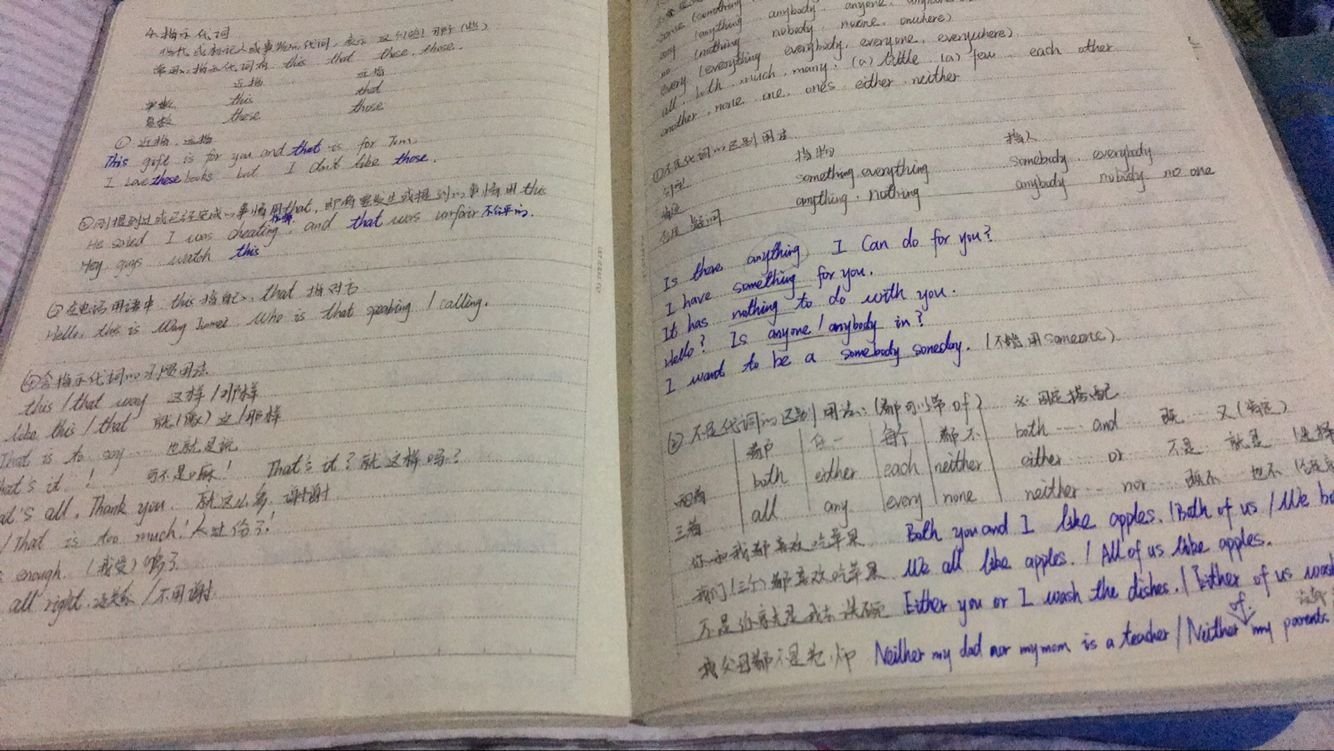 4.指示代词
指代或标记人或事物的代词,表示这(些)那(些)
常用的指示代词有 this that these, those.
近指 远指
单数 this that
复数 these those
① 近指、远指
This gift is for you and that is for Tom.
I Love these books but I don't like those.
②刚提到过或已经完成的事情用that,即将要发生或提到的事情用this
He said I was cheating, and that was unfair 不公平的.
作弊
Hey, guys watch this
③在电话用语中 this指自己, that 指对方
Hello, this is Wang. Who is that speaking / calling.
④含指示代词的习惯用法
this / that way 这样/那样
like this / that 就(像)这/那样
That is to say.... 也就是说
hat's it! 可不是嘛! That's it? 就这样吗?
at's all, Thank you. 就这么多,谢谢
/ That is too much! 太过份了!
enough. (我受)够了
all right. 没关系/不用谢.
some (something
any (anything anybody, anyone,
no (nothing nobody, noone, nowhere)
every (everything everybody, everyone, everywhere)
all, both, much, many, (a) little (a) few, each other
another, none, one, ones either, neither
①不定代词的区别用法
指物 指人
something, everything somebody, everybody
anything, nothing anybody nobody no one
疑问
Is there anything I Can do for you?
I have something for you.
It has nothing to do with you.
Hello? Is anyone / anybody in?
I want to be a somebody someday. (不能用someone)
②不定代词的区别用法:(都可以带of) ※ 固定搭配
都 任一 每个 都不 both .... and 既...又(肯定)
两者 both either each neither either ... or 不是...就是(选择
三者 all any every none neither ... nor 既不...也不
你和我都喜欢吃苹果 Both you and I like apples. / Both of us / We bo
我们(三个)都喜欢吃苹果 We all like apples. / All of us like apples.
不是你就是我去洗碗 Either you or I wash the dishes. / Either of us wash
我父母都不是老师 Neither my dad nor my mom is a teacher / Neither of my parents